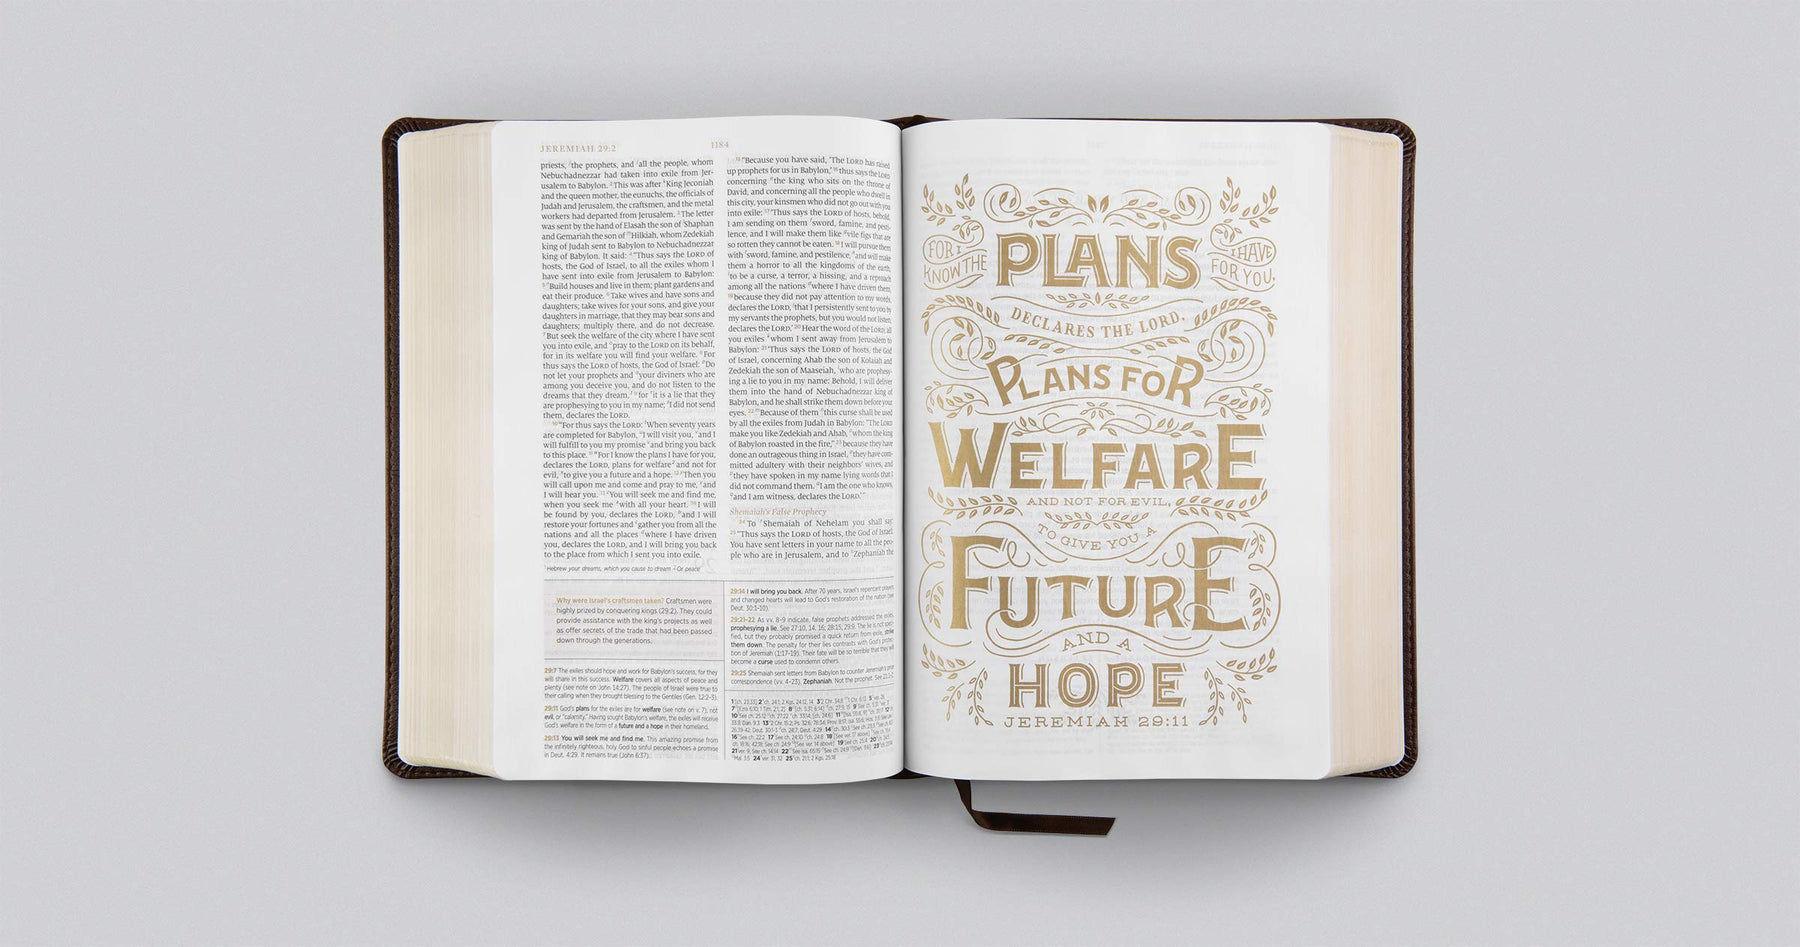 JEREMIAH 29:2
1184
priests, the prophets, and all the people, whom
Nebuchadnezzar had taken into exile from Jer-
usalem to Babylon. 2 This was after King Jeconiah
and the queen mother, the eunuchs, the officials of
Judah and Jerusalem, the craftsmen, and the metal
workers had departed from Jerusalem. 3 The letter
was sent by the hand of Elasah the son of Shaphan
and Gemariah the son of Hilkiah, whom Zedekiah
king of Judah sent to Babylon to Nebuchadnezzar
king of Babylon. It said: 4 "Thus says the LORD of
hosts, the God of Israel, to all the exiles whom I
have sent into exile from Jerusalem to Babylon:
5 Build houses and live in them; plant gardens and
eat their produce. 6 Take wives and have sons and
daughters; take wives for your sons, and give your
daughters in marriage, that they may bear sons and
daughters; multiply there, and do not decrease.
7 But seek the welfare of the city where I have sent
you into exile, and pray to the LORD on its behalf,
for in its welfare you will find your welfare. 8 For
thus says the LORD of hosts, the God of Israel: Do
not let your prophets and your diviners who are
among you deceive you, and do not listen to the
dreams that they dream, 9 for it is a lie that they
are prophesying to you in my name; I did not send
them, declares the LORD.
10 "For thus says the LORD: When seventy years
are completed for Babylon, I will visit you, and I
will fulfill to you my promise and bring you back
to this place. 11 For I know the plans I have for you,
declares the LORD, plans for welfare and not for
evil, to give you a future and a hope. 12 Then you
will call upon me and come and pray to me, and
I will hear you. 13 You will seek me and find me,
when you seek me with all your heart. 14 I will
be found by you, declares the LORD, and I will
restore your fortunes and gather you from all the
nations and all the places where I have driven
you, declares the LORD, and I will bring you back
to the place from which I sent you into exile.
1 Hebrew your dreams, which you cause to dream 2 Or peace
Why were Israel's craftsmen taken? Craftsmen were
highly prized by conquering kings (29:2). They could
provide assistance with the king's projects as well
as offer secrets of the trade that had been passed
down through the generations.
29:7 The exiles should hope and work for Babylon's success, for they
will share in this success. Welfare covers all aspects of peace and
plenty (see note on John 14:27). The people of Israel were true to
their calling when they brought blessing to the Gentiles (Gen. 12:2–3).
29:11 God's plans for the exiles are for welfare (see note on v. 7), not
evil, or "calamity." Having sought Babylon's welfare, the exiles will receive
God's welfare in the form of a future and a hope in their homeland.
29:13 You will seek me and find me. This amazing promise from
the infinitely righteous, holy God to sinful people echoes a promise
in Deut. 4:29. It remains true (John 6:37).
15 "Because you have said, 'The LORD has raised
up prophets for us in Babylon,' 16 thus says the LORD
concerning the king who sits on the throne of
David, and concerning all the people who dwell in
this city, your kinsmen who did not go out with you
into exile: 17 'Thus says the LORD of hosts, behold,
I am sending on them sword, famine, and pesti-
lence, and I will make them like vile figs that are
so rotten they cannot be eaten. 18 I will pursue them
with sword, famine, and pestilence, and will make
them a horror to all the kingdoms of the earth,
to be a curse, a terror, a hissing, and a reproach
among all the nations where I have driven them,
19 because they did not pay attention to my words,
declares the LORD, that I persistently sent to you by
my servants the prophets, but you would not listen,
declares the LORD.' 20 Hear the word of the LORD, all
you exiles whom I sent away from Jerusalem to
Babylon: 21 'Thus says the LORD of hosts, the God
of Israel, concerning Ahab the son of Kolaiah and
Zedekiah the son of Maaseiah, who are prophesy-
ing a lie to you in my name: Behold, I will deliver
them into the hand of Nebuchadnezzar king of
Babylon, and he shall strike them down before your
eyes. 22 Because of them this curse shall be used
by all the exiles from Judah in Babylon: "The LORD
make you like Zedekiah and Ahab, whom the king
of Babylon roasted in the fire," 23 because they have
done an outrageous thing in Israel, they have com-
mitted adultery with their neighbors' wives, and
they have spoken in my name lying words that I
did not command them. I am the one who knows,
and I am witness, declares the LORD.'"
Shemaiah's False Prophecy
24 To Shemaiah of Nehelam you shall say:
25 "Thus says the LORD of hosts, the God of Israel:
You have sent letters in your name to all the peo-
ple who are in Jerusalem, and to Zephaniah the
29:14 I will bring you back. After 70 years, Israel's repentant prayers
and changed hearts will lead to God's restoration of the nation (see
Deut. 30:1–10).
29:21–22 As vv. 8–9 indicate, false prophets addressed the exiles,
prophesying a lie. See 27:10, 14, 16; 28:15; 29:9. The lie is not speci-
fied, but they probably promised a quick return from exile. strike
them down. The penalty for their lies contrasts with God's protec-
tion of Jeremiah (1:17–19). Their fate will be so terrible that they will
become a curse used to condemn others.
29:25 Shemaiah sent letters from Babylon to counter Jeremiah's prior
correspondence (vv. 4–23). Zephaniah. Not the prophet. See 21:1–2
FOR I
KNOW THE
PLANS
I HAVE
FOR YOU,
DECLARES THE LORD,
PLANS FOR
WELFARE
AND NOT FOR EVIL,
TO GIVE YOU A
FUTURE
AND A
HOPE
JEREMIAH 29:11